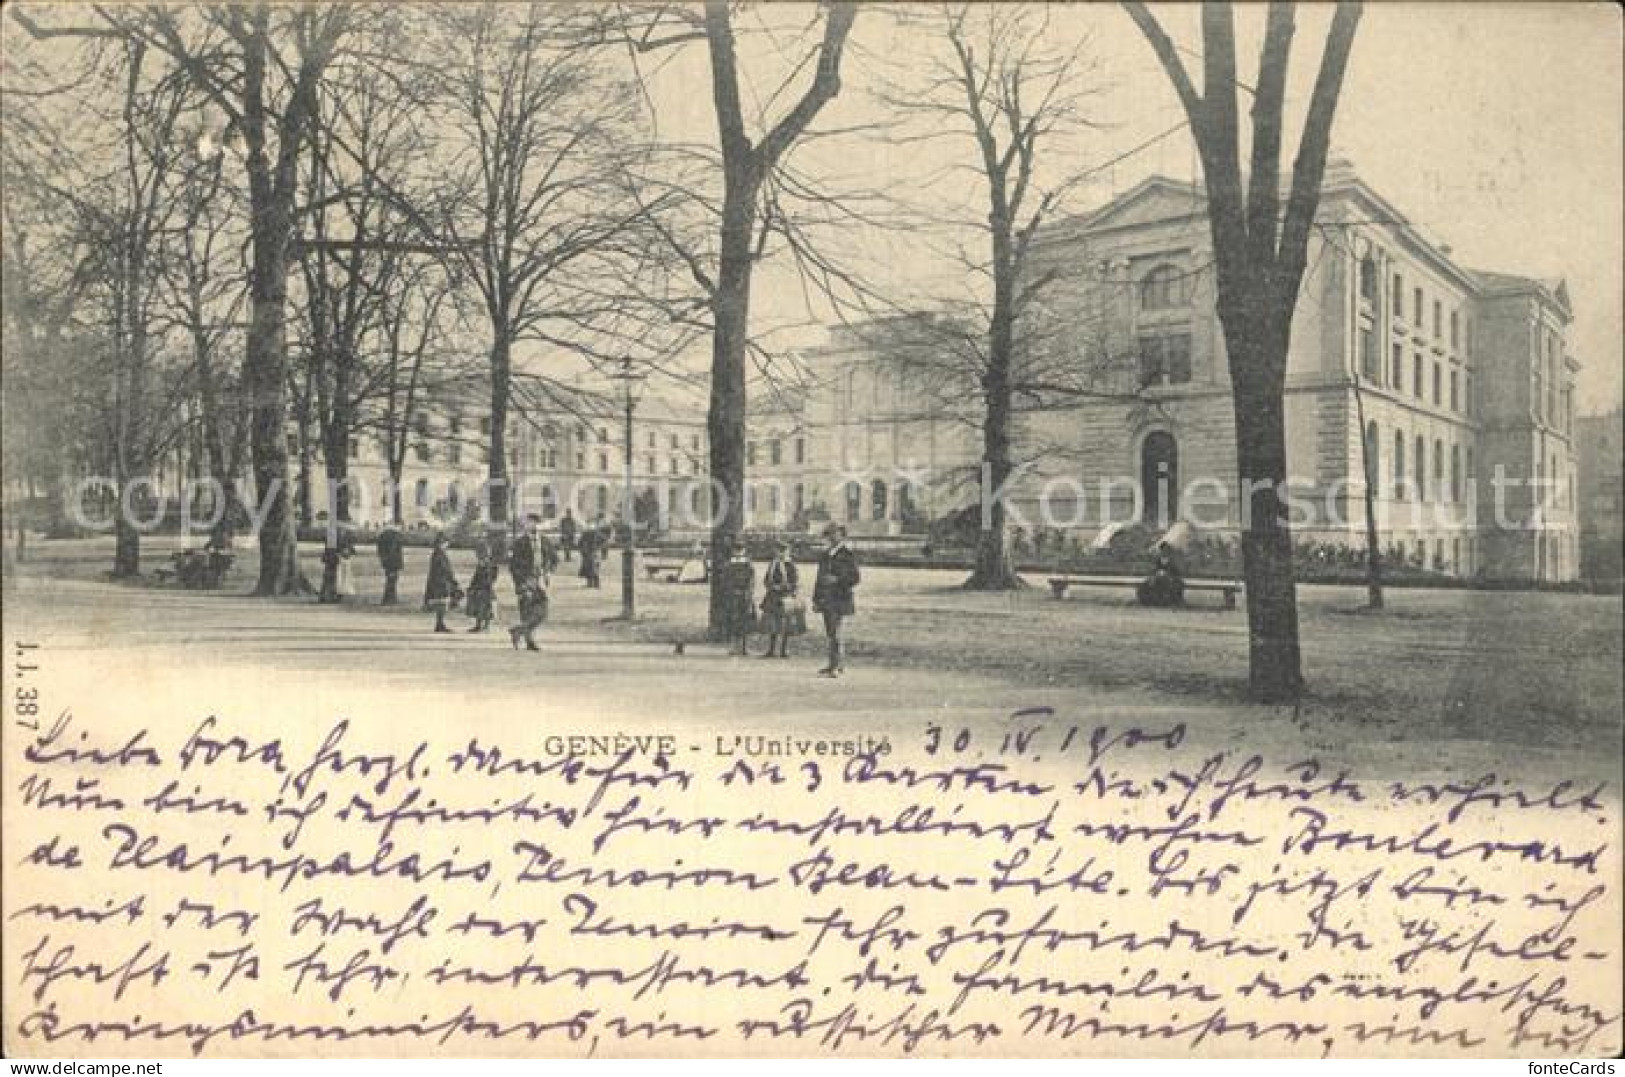 copy protection ** Kopierschutz
J.J. 387
GENÈVE - L'Université 30. IV. 1900
Liebe Dora, herzl. Dank für die 3 Karten die ich heute erhielt.
Nun bin ich definitiv hier installiert, wohne Boulevard
de Plainpalais, Pension Beau-Site. Bis jetzt bin ich
mit der Wahl der Pension sehr zufrieden. Die Gesell-
schaft ist sehr interessant. Die Familie des englischen
Kriegsministers, ein russischer Minister, eine
delcampe.net
fonteCards